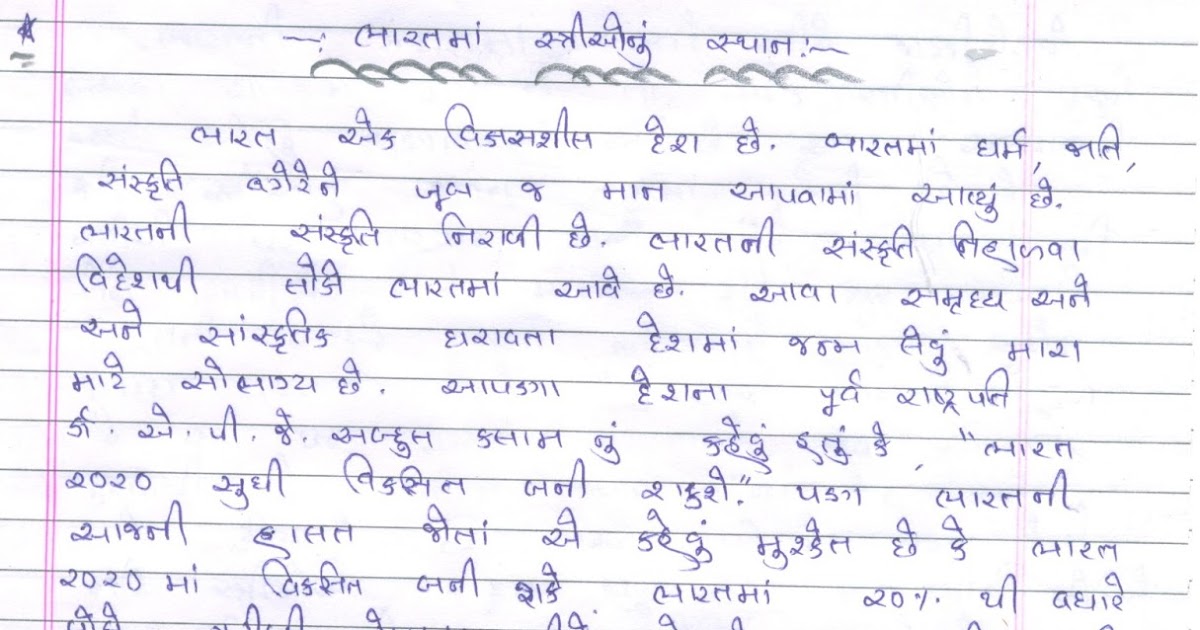 -: ભારતમાં સ્ત્રીઓનું સ્થાન:-
ભારત એક વિકાસશીલ દેશ છે. ભારતમાં ધર્મ, જાતિ,
સંસ્કૃતિ વગેરેને ખૂબ જ માન આપવામાં આવ્યું છે.
ભારતની સંસ્કૃતિ નિરાળી છે. ભારતની સંસ્કૃતિ નિહાળવા
વિદેશથી લોકો ભારતમાં આવે છે. આવા સમૃધ્ધ અને
અને સાંસ્કૃતિક ધરાવતા દેશમાં જન્મ લેવું મારા
માટે સૌભાગ્ય છે. આપણા દેશના પૂર્વ રાષ્ટ્રપતિ
ર્ડા. એ. પી. જે. અબ્દુલ કલામ નું કહેવું હતું કે, "ભારત
૨૦૨૦ સુધી વિકસિત બની શકશે." પણ ભારતની
આજની હાલત જોતાં એ કહેવું મુશ્કેલ છે કે ભારત
૨૦૨૦ માં વિકસિત બની શકે. ભારતમાં ૨૦% થી વધારે